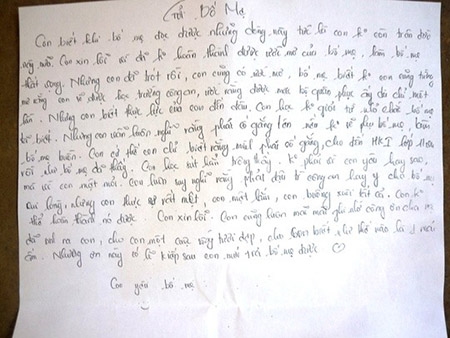 Gửi Bố Mẹ
Con biết khi bố mẹ đọc được những dòng này tức là con k° còn trên đời
này nữa. Con xin lỗi vì đã k° hoàn thành được ước mơ của bố mẹ, làm bố mẹ
thất vọng. Nhưng con đã trót rồi, con cũng có ước mơ, bố mẹ biết k° con cũng từng
mơ rằng con sẽ được học trường công an, ước rằng được mặc bộ quân phục ấy dù chỉ một
lần. Nhưng con biết thực lực của con đến đâu. Con học k° giỏi từ nhỏ chắc bố mẹ
đã biết. Nhưng con luôn luôn nghĩ rằng phải cố gắng lên nếu k° sẽ phụ bố mẹ, làm
bố mẹ buồn. Con cứ thế con chỉ biết rằng mình phải cố gắng, cho đến HKI lớp
rồi bố mẹ đã thấy. Con học sút hẳn trông thấy. k° phải vì con yêu hay sao,
mà vì con mệt mỏi. Con luôn suy nghĩ rằng phải đỗ trường công an hay gì cho bố mẹ
vui lòng, nhưng con thực sự rất mệt, con mệt lắm, con buông xuôi tất cả. Con k°
thể hoàn thành nó được. Con xin lỗi. Con cũng luôn mãi mãi ghi nhớ công ơn cha mẹ
đã sinh ra con, cho con một cuộc sống tươi đẹp, cho con biết như thế nào là 1 mái
ấm. Nhưng ơn này có lẽ kiếp sau con mới trả bố mẹ được ♡
Con yêu bố mẹ